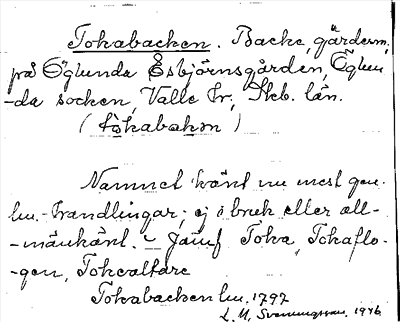 Tokabacken. Backe, gärdern,
på Öglunda Esbjörnsgården, Öglun-
-da socken, Valle hr, Skb. län.
(tokabakən)
Namnet känt nu mest gen.
lm.-handlingar; ej i bruk eller all-
-mänkänt. - Jämf Toka, Tokaflo-
-gen, Tokealtare
Tokabacken lm. 1797
L. M. Svenungsson. 1946